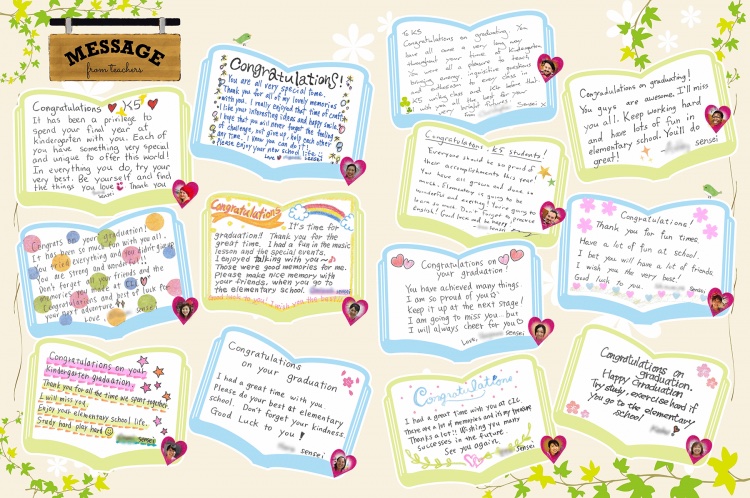 MESSAGE
from teachers
Congratulations K5
It has been a privilege to
spend your final year at
Kindergarten with you. Each of
you have something very special
and unique to offer this world!
In everything you do, try your
very best. Be yourself and find
the things you love Thank you
sensei
Congratulations!
You are all very special to me.
Thank you for all of my lovely memories
with you. I really enjoyed that time of crafts.
I like your interesting ideas and happy smile.
I hope that you will never forget the feeling
of challenge, not give up, help each other
any time. I know you can do it!
Please enjoy your new school life.
Love, sensei
Congrats on your graduation!
It has been so much fun with you all.
You tried everything and you didn't give up
You are strong and wonderful!!
Don't forget all your friends and the
memories you made at CLC
Congratulations and best of luck for
your next adventure
Love, sensei
Congratulations
It's time for
graduation!! Thank you for the
great time. I had a fun in the music
lesson and the special events.
I enjoyed talking with you~
Those were good memories for me.
Please make nice memory with
your friends, when you go to
the elementary school. sensei
Good luck to you! I wish you the best!!
Congratulations on your
Kindergarten graduation.
Thank you for all the time we spent together.
I will miss you.
Enjoy your elementary school life.
Study hard play hard
sensei
Congratulations
on your graduation
I had a great time with you
Please do your best at elementary
school. Don't forget your kindness
Good Luck to you!
sensei
To K5
Congratulations on graduating. You
have all come a very long way
throughout your time at Kindergarten
You were all a pleasure to teach
bringing energy, inquisitive questions
and enthusiasm to every class
K5 writing class and
I wish you all the best for your
very bright futures!
sensei x
Congratulations, K5 students!
Everyone should be so proud of
their accomplishments this year.
You have all grown and done so
much. Elementary is going to be
wonderful and exciting! You're going to
learn so much. Don't forget to practice
Eashii! Good luck and be happy.
sensei
Congratulations on
your graduation!
You have achieved many things
I am so proud of you
Keep it up at the next stage!
I am going to miss you but
I will always cheer for you
Love, sensei
Congratulations
I had a great time with you at CLC.
There are a lot of memories and is my treasure
Thanks a lot!! Wishing you many
Successes in the future.
See you again.
sensei
Congratulations on graduating!
You guys are awesome. I'll miss
you all! Keep working hard
and have lots of fun in
elementary school. You'll do
great!
sensei
Congratulations!
Thank you for fun times.
Have a lot of fun at school.
I bet you will have a lot of friends.
I wish you the very best!
Good luck to you.
sensei
Congratulations on
graduation.
Happy Graduation
Try study, exercise hard if
you go to the elementary
school